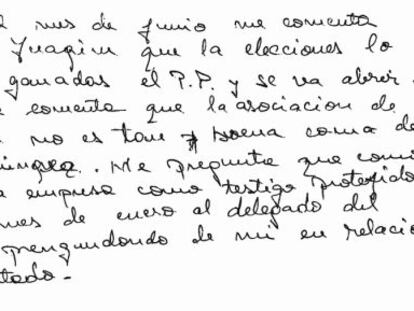 mes de junio me comenta
Juaqin que la elecciones lo
ganadas el P.P. y se va abrir
comenta que la asociacion de
no es tan buena como
. Me pregunta que
empresa como testigo protejido
mes de enero al delegado del
de mi en relacio
tado -